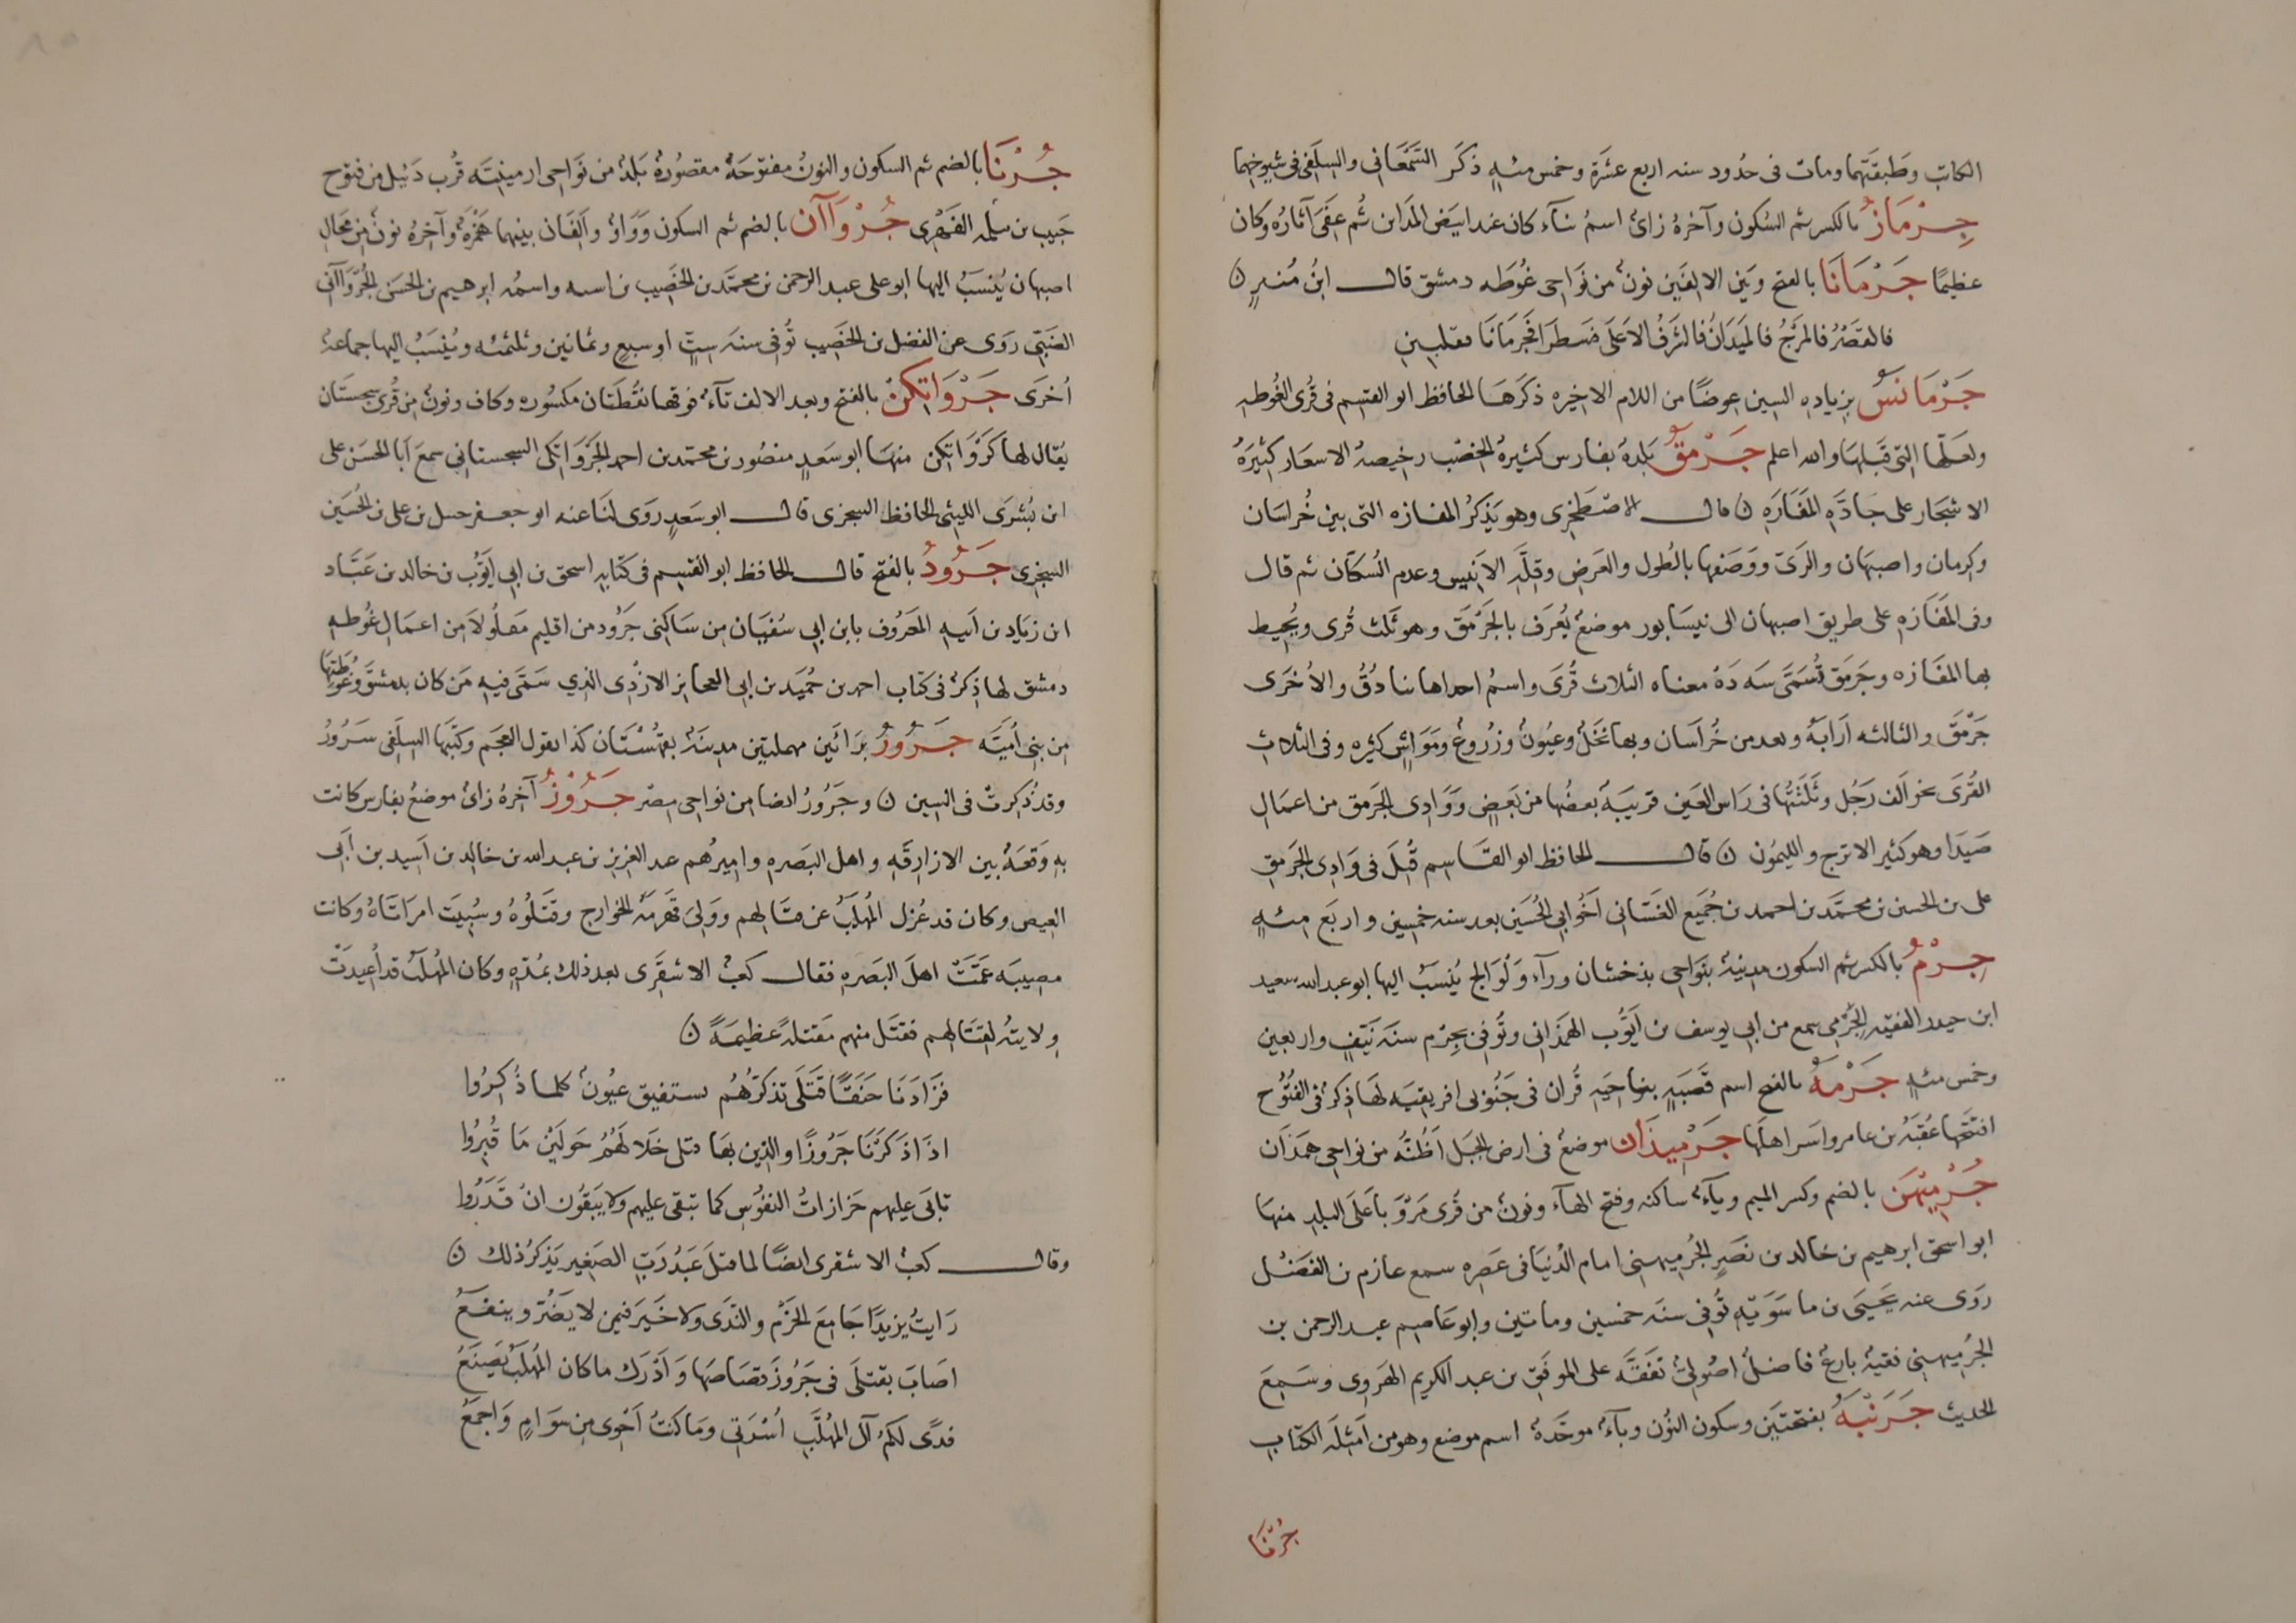 الكاتب وطَبقَتهما ومات فى حُدود سنه اربع عشَرة وخمس مئهٍ ذكَر السَّمعَانى والسِلَفى فى شيوخهما
جِرْمَازُ بالكسر ثم السُكون وآخرهُ زائ اسمُ بنآء كان عند ابيَض المَداين ثُم عَفَى آثارُه وكان
عظيمًا جَرْمَانَا بالفتح وبَين الالفَين نونٌ من نَواحى غُوطَه دمشق قال ابنُ مُنيرٍ ن
فالقصْرُ فالمَرْجُ فالمَيدَانُ فالشَرفُ الاَعلَى فسَطرَا فجَرمَانَا فقلبينِ
جَرْمَانسُ بزيادهِ السين عوضًا من اللام الاخيره ذكرَهَا الحافظ ابو القسم فى قُرى الغُوطهِ
ولعَلّها التى قبَلهَا والله اعلم جَرْمقُ بَلدهٌ بفارس كثيرهُ الخِصْب رخيصهُ الاسعَار كثيرَهُ
الاشجَار على جَادَّهِ المَفَازَهِ ن قال الاصْطَخِرى وهو يَذكرُ المفازه التى بين خُراسَان
وكرمان واصبهَان والرَىّ ووَصَفها بالُطول والعَرض وقِلَّهِ الانَيس وعدم السُكان ثم قال
وفى المَفَازَهِ على طريق اصبهان الى نيسَابور موضعٌ يُعرَف بالجَرْمَق وهو ثَلث قُرى ويُحيط
بها المفَازه وجَرمَق تُسَمّى سَه دَهْ معناه الثلاث قُرَى واسمُ احداها بنادُقُ والاُخَرى
جَرْمَق والثالثه اَرَابَهْ وبعد من خُراَسان وبها نَخَلٌ وعيُونٌ وزُروعٌ ومَوَاشٍ كثيره وفى الثلاثِ
القُرَى نحو الَف رَجُل وثَلثَتُها فى رَاس العَين قريبَهٌ بعضُها من بَعضٍ ووَادى الجَرمق من اعمَال
صَيدَا وهو كثير الاترج والليمُون ن قال الحافظ ابو القاسم قُتِلَ فى وَادى الجَرمقِ
على بن الحسن بن محتمَّد بن احمد بن جُمَيع الغسَّانى اَخُو ابى الحُسَين بعد سنه خمسين واربَع مئهٍ
جِرْمُ بالكسر ثم السكون مدينهٌ بنَواحى بذخشان ورآء وَلْوَالج يُنسَبُ اليها ابو عبد الله سعيد
ابن حيدر الفقيهُ الجِرْمى سمع من ابى يوسف بن ايَوُّب الهمَذانى وتُوفى بجِرْم سنَه نَيّفٍ واربعين
وخمس مئهٍ جَرْمهُ بالفتح اسم قَصَبهٍ بناحيَهِ فُزان فى جَنُوبى افريقيَه لهَا ذِكرٌ فى الفتُوُح
افتتَحَها عُقبَهُ بن عامر واسَر اهلَها جَرْميذَان موضعٌ فى ارض الجَبَل اَظُنُّه من نواحى همَذَان
جُرْميْهَن بالضم وكسر الميم ويآءٌ ساكنه وفتح الهآء ونونٌ من قُرى مَرْوَ باَعَلَى البلدِ منهَا
ابو اسحق ابرهيم بن خالد بن نصَرٍ الجُرميهنى امام الدُنيا فى عَصِره سمع عارم بن الفضْل
روَى عنه يَحيىَ بن ماسَوَيهِ تُوفى سنَه خمسين وماتين وابو عَاصِم عبد الرحمن بن
الجُرميهنىَ فقيهٌ بارعٌ فاضلٌ اصُولىٌ تفَقَّه على الموفّق بن عبد الكريم الهَروى وسَمِعَ
الحديث جَرَنْبَهُ بفتحتَين وسكون النُون وبآءٌ موحَّدهٌ اسم موضع وهو من اَمثِلَه الكتاب
جُرْنَا
جُرْنَا بالضم ثم السكون والنونُ مفتوحَهٌ مقصُورهٌ بَلدٌ من نَواحى ارمينيّه قُرب دَبيل من فتوح
حَبيب بن مَسلمه الفِهرى جُرْوَاآن بالضم ثم السكون وَوَاوٌ واَلفَان بينهما هَمْزهٌ وآخرهُ نونٌ من محَالِ
اصبهان يُنسَبُ اليها ابو على عبد الرحمن بن محتمَّد بن الخَصِيب بن رسته واسمُه ابرهيم بن الحسَن الجُرْوَاآنى
الضبَىّ روَى عن الفضل بن الخَصِيب تُوُفى سنَه ستٍ او سبعٍ وثمانين وثلثمئه ويُنسَبُ اليها جماعهٌ
اُخَرى جَرْوَاتِكنُ بالفتح وبعد الالف تآءٌ فوقها نقطَتَان مكسُوره وكاف ونونٌ من قُرى سجسَتان
يُقال لها كَرْوَاتكن منهَا ابو سَعدٍ منصُور بن محتمَد بن احمد الجَرْوَاتكى السجستانى سمعَ اَبا الحسَن على
ابن بُشرَى الليثى الحافظ السجزى قال ابو سَعدٍ روَى لنَا عنه ابو جعفر حنبل بن على بن الحُسَين
السجزى جَرُودُ بالفتح قال الحافظ ابو القسم فى كتابهِ اسحق بن ابى ايَوُّب بن خالد بن عَبّاد
ابن زيَاد بن اَبيهِ المَعرُوف بابن ابى سُفيَان مِن سَاكنى جَرُود من اقليم مَعلُولاَ من اعمَال غُوطهِ
دمشق لها ذِكرٌ فى كتاب احمد بن حُمَيد بن ابى العجايز الازْدى الذي سَمَّى فيهِ مَن كان بدمشقَ وغُوطتِهَا
مِن بنى اُمَيّه جَرُورُ برَائَين مهملتين مدينَهٌ بقهُستَان كذا يقول العجَم وكتبَها السِلَفى سَرُورُ
وقد ذُكِرتْ فى السين ن وجَرُورُ ايضا من نواحى مصْر جَرُوْزُ آخرهُ زائ موضعٌ بفارس كانت
بهِ وَقعَهٌ بين الازارِقَهِ واهل البَصَرهِ واميرُهم عبد العزيز بن عبد الله بن خالد بن اَسيد بن اَبى
العيص وكان قد عُزل المُهلَّبُ عن قتالهم ووَلىَ فهَزمَهُ الخوارج وقَتَلُوهُ وسُبيَت امرَاتَاهُ وكانت
مصيبَه عَمَّتْ اهلَ البصَرهِ فقال كعبْ الاشقَرى بعد ذلك بمُدّهٍ وكان المُهلَّبُ قد اُعيدَتْ
ولايتهُ لقتَالهم فقتَل منهم مَقتلهً عظيمَهً ن
فزَادَنَا حَنَقًا قَتلَى تذكرُهُم لا تستفيق عيُونٌ كلما ذُكِرُوا
اذَا ذَكرْنَا جَرُوزًا والذين بها قتلى خَلا لَهُمُ حَولَيْن مَا قُبِرُوا
تاتَى عليهم حَزازاتُ النفوسِ كما تبقى عليهم ولا يَبقُون انْ قَدَرُوا
وقال كعبْ الاشقرى ايضًا لما قتلَ عَبدُ رَبّ الصَغير يَذكرُ ذلك ن
رَايتُ يزيدًا جَامِعَ الحَزْم والندَى ولا خَيرَ فيمن لا يَضُرّ وينفَعُ
اصَابَ بقتلَى فى جَرُوزَ قصَاصَها وَاَدْرَك ما كان المُهلَّبُ يَصنَعُ
فدًى لكُم آلَ المُهلَّبِ اُسْرَتى ومَا كنتُ اَحوِى مِن سوَامٍ وَاجمَعُ